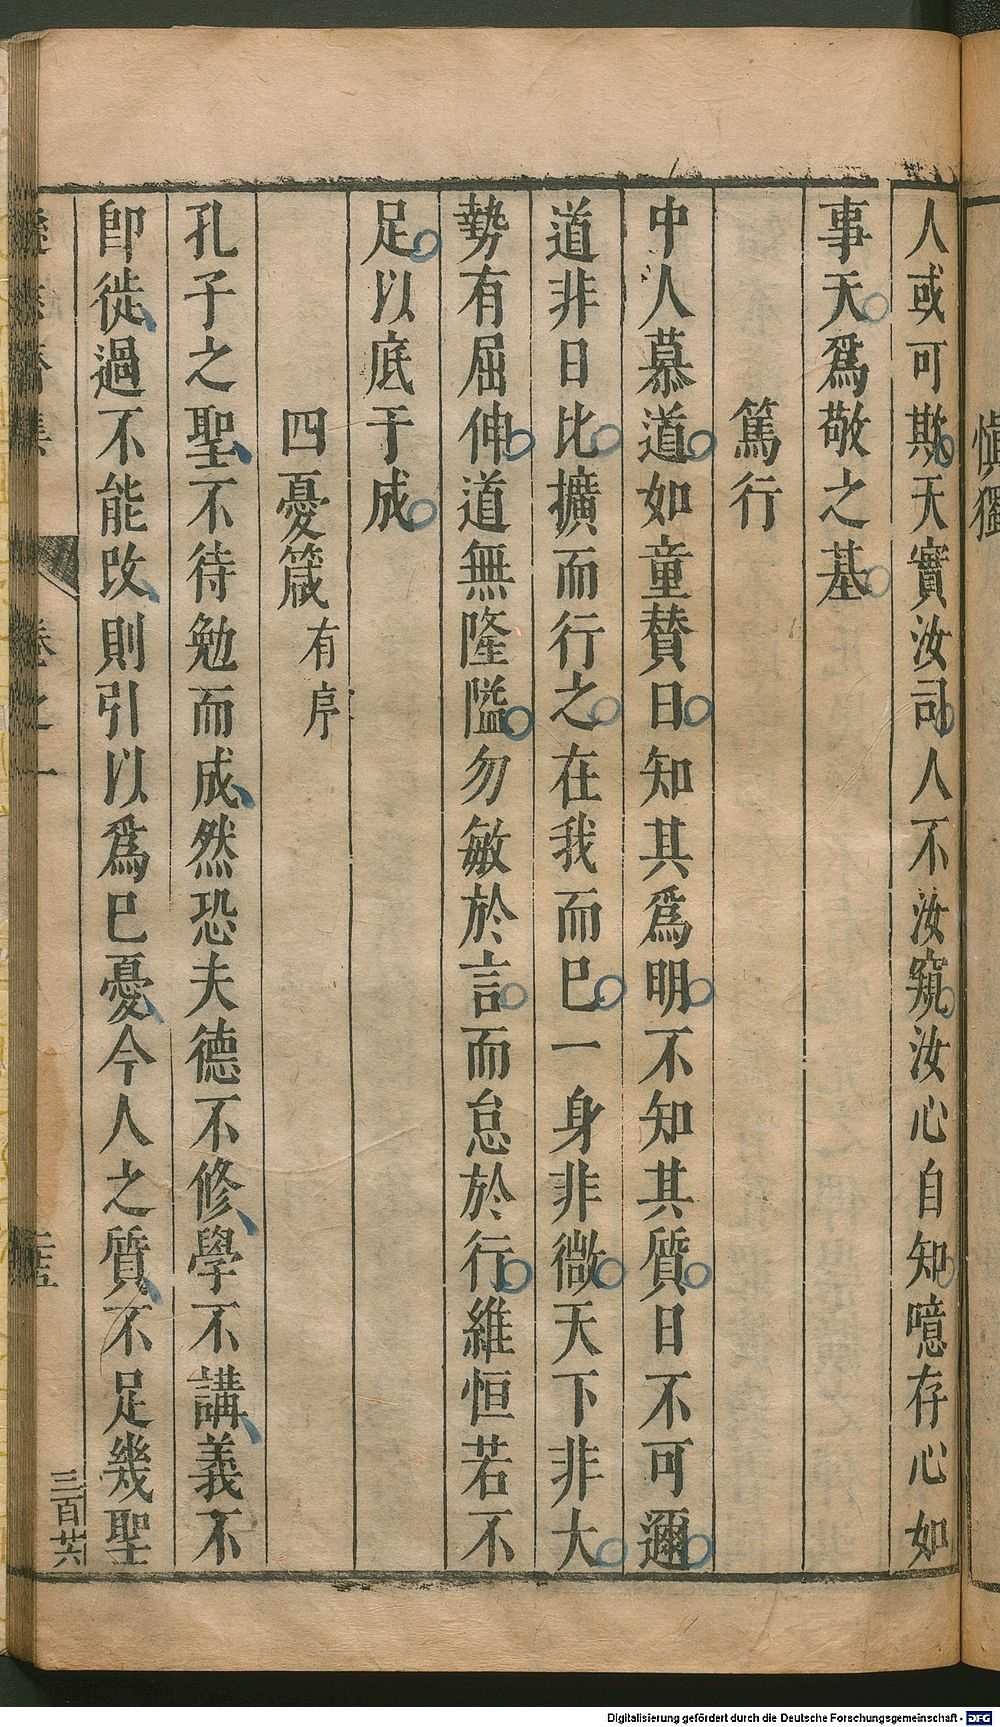 慎獨
人或可欺天實汝司人不汝窺汝心自知噫存心如
事天爲敬之基
篤行
中人慕道如童贊日知其爲明不知其質日不可邇
道非日比擴而行之在我而巳一身非微天下非大
勢有屈伸道無隆隘勿敏於言而怠於行維恒若不
足以底于成
四憂箴有序
孔子之聖不待勉而成然恐夫德不修學不講義不
卽徙過不能改則引以爲巳憂今人之質不足幾聖
集
卷之一
三百廿六
Digitalisierung gefördert durch die Deutsche Forschungsgemeinschaft - DFG